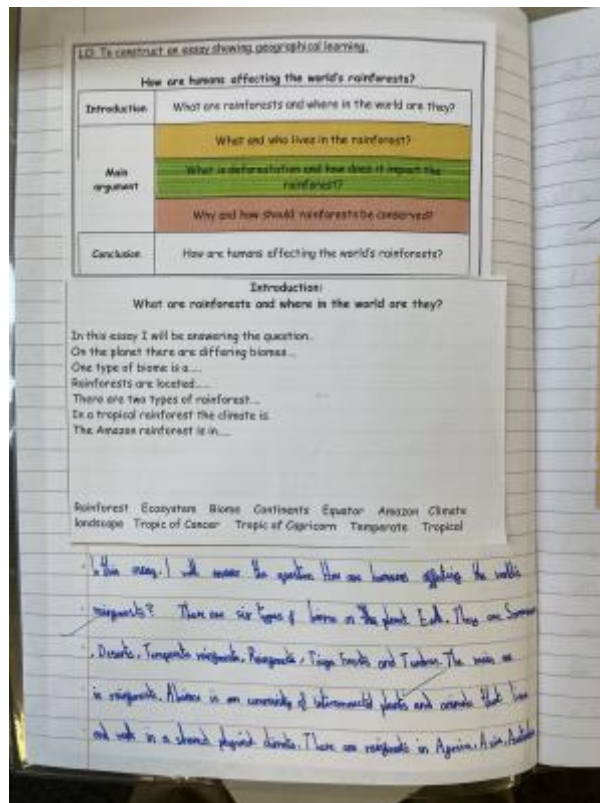 LO: To construct an essay showing geographical learning.
How are humans affecting the world's rainforests?
Introduction
What are rainforests and where in the world are they?
Main argument
What and who lives in the rainforest?
What is deforestation and how does it impact the
rainforest?
Why and how should rainforests be conserved?
Conclusion
How are humans affecting the world's rainforests?
Introduction:
What are rainforests and where in the world are they?
In this essay I will be answering the question..
On the planet there are differing biomes...
One type of biome is a....
Rainforests are located....
There are two types of rainforest...
In a tropical rainforest the climate is
The Amazon rainforest is in....
Rainforest Ecosystem Biome Continents Equator Amazon Climate
landscape Tropic of Cancer Tropic of Capricorn Temperate Tropical
In this essay, I will answer the question How are humans affecting the world's
rainforests? There are six types of biome on the planet Earth. They are
, Deserts, Temperate rainforests, Rainforests, Taiga Forests and Tundras. The main
is rainforests. A biome is a community of interconnected plants and animals that live
and walk in a shared physical climate. There are rainforests in Asia,